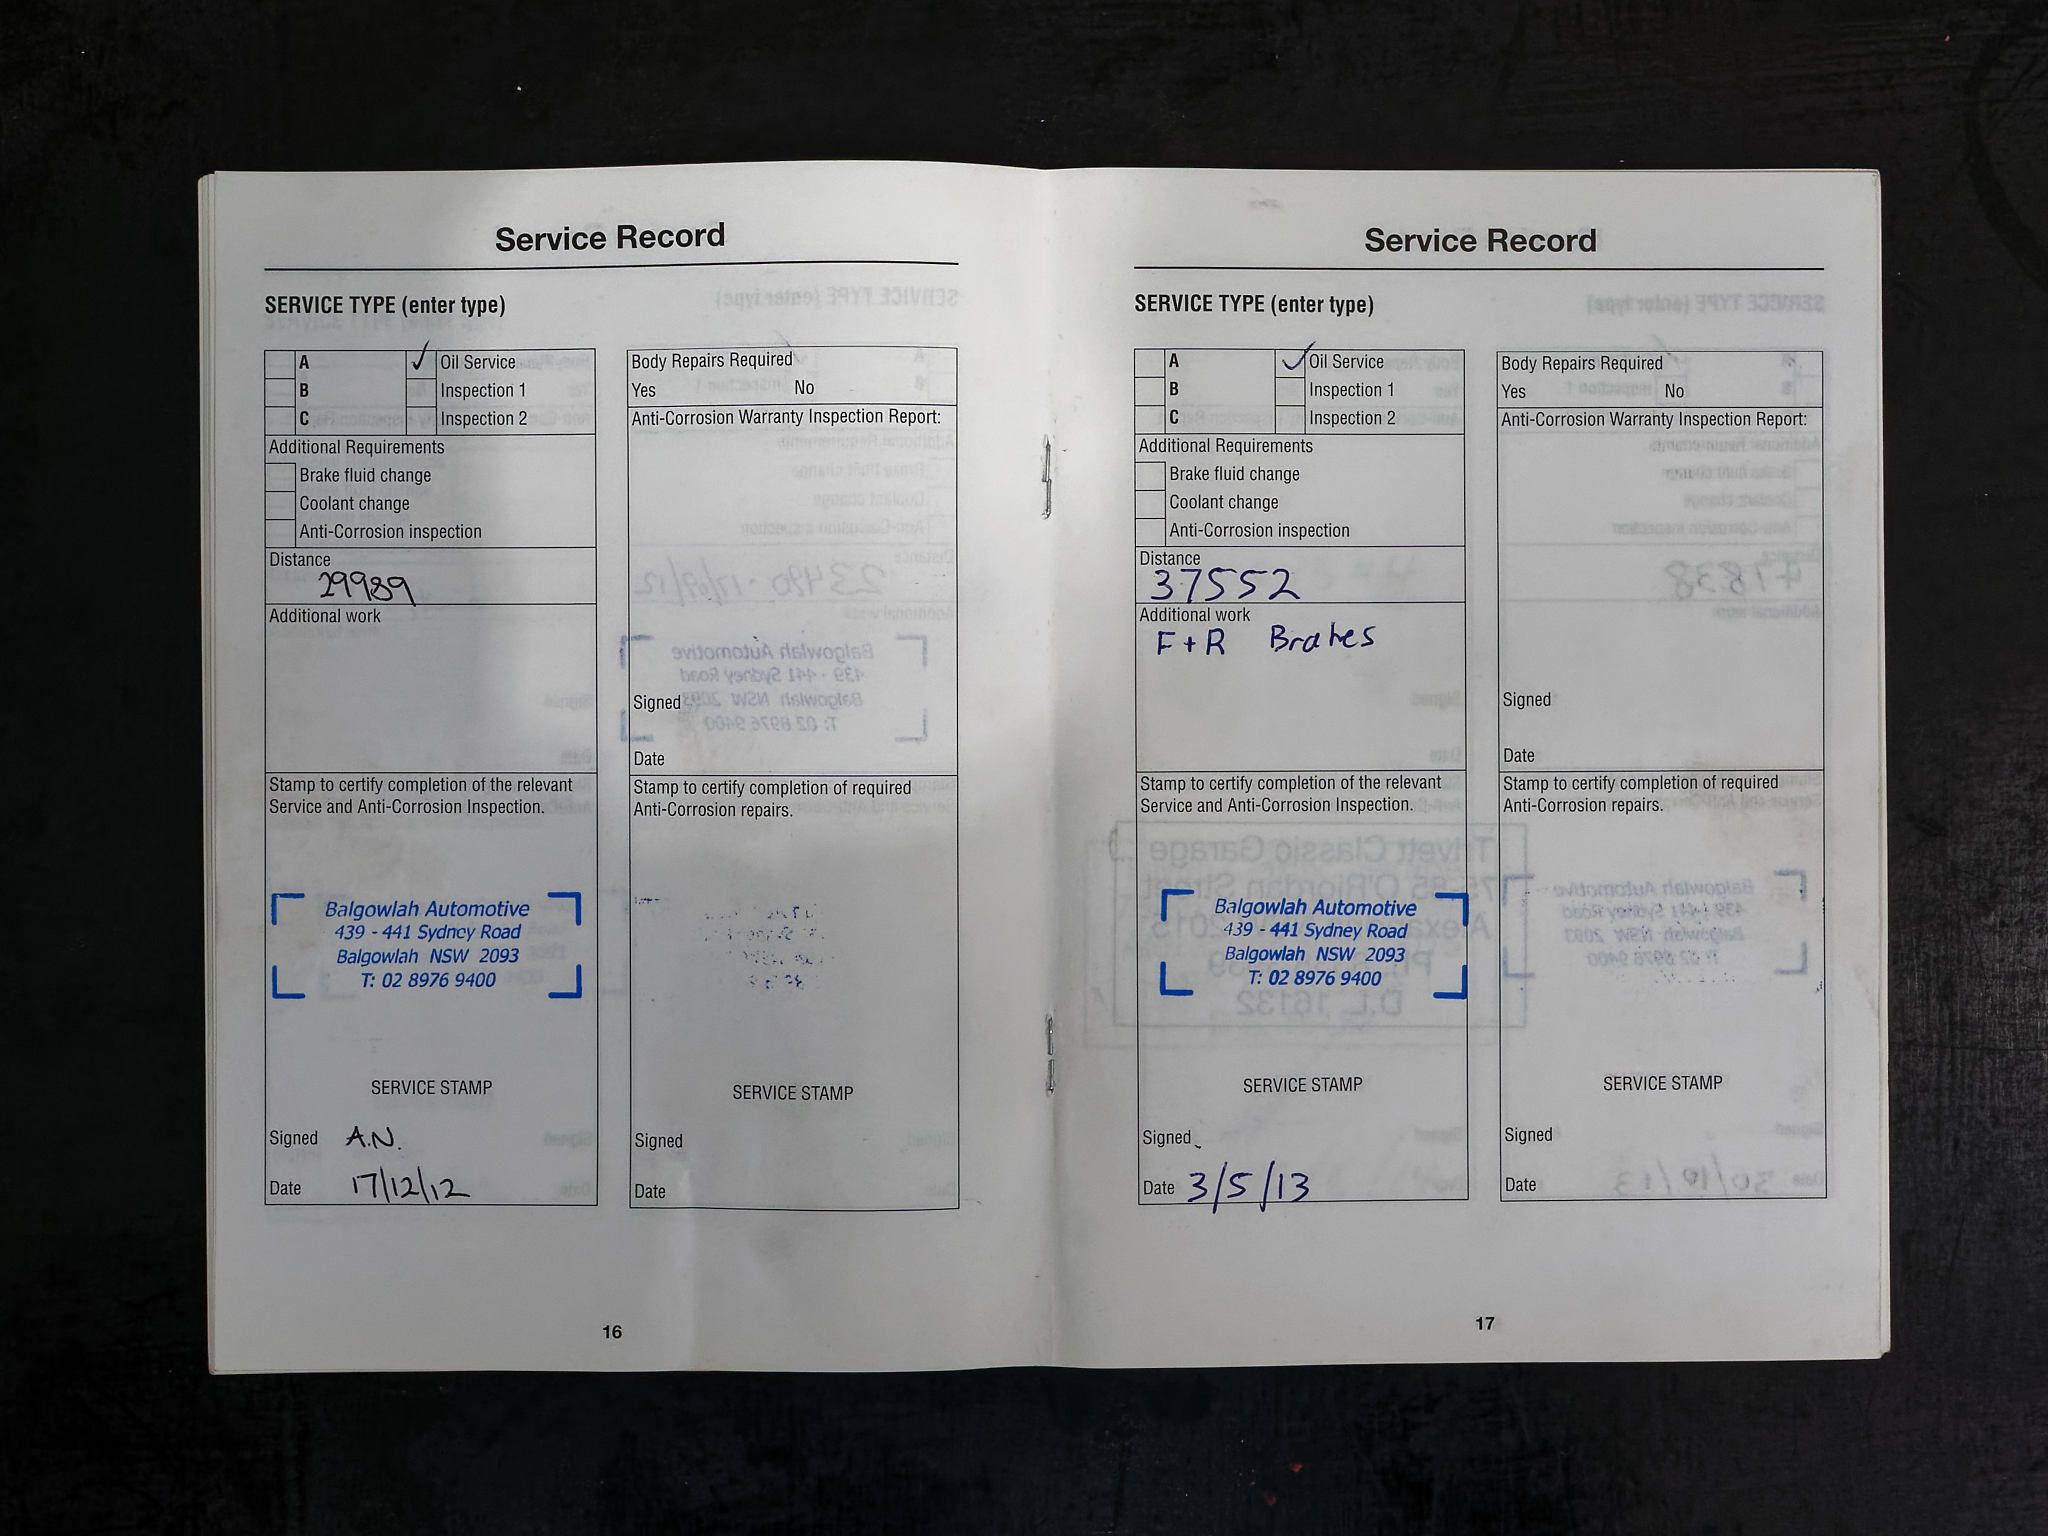 Service Record
SERVICE TYPE (enter type)
A ✓ Oil Service
B Inspection 1
C Inspection 2
Additional Requirements
Brake fluid change
Coolant change
Anti-Corrosion inspection
Distance
29989
Additional work
Stamp to certify completion of the relevant
Service and Anti-Corrosion Inspection.
Balgowlah Automotive
439 - 441 Sydney Road
Balgowlah NSW 2093
T: 02 8976 9400
SERVICE STAMP
Signed A.N.
Date 17/12/12
Body Repairs Required
Yes No
Anti-Corrosion Warranty Inspection Report:
Signed
Date
Stamp to certify completion of required
Anti-Corrosion repairs.
SERVICE STAMP
Signed
Date
16
Service Record
SERVICE TYPE (enter type)
A ✓ Oil Service
B Inspection 1
C Inspection 2
Additional Requirements
Brake fluid change
Coolant change
Anti-Corrosion inspection
Distance
37552
Additional work
F + R Brakes
Stamp to certify completion of the relevant
Service and Anti-Corrosion Inspection.
Balgowlah Automotive
439 - 441 Sydney Road
Balgowlah NSW 2093
T: 02 8976 9400
SERVICE STAMP
Signed
Date 3/5/13
Body Repairs Required
Yes No
Anti-Corrosion Warranty Inspection Report:
Signed
Date
Stamp to certify completion of required
Anti-Corrosion repairs.
SERVICE STAMP
Signed
Date
17